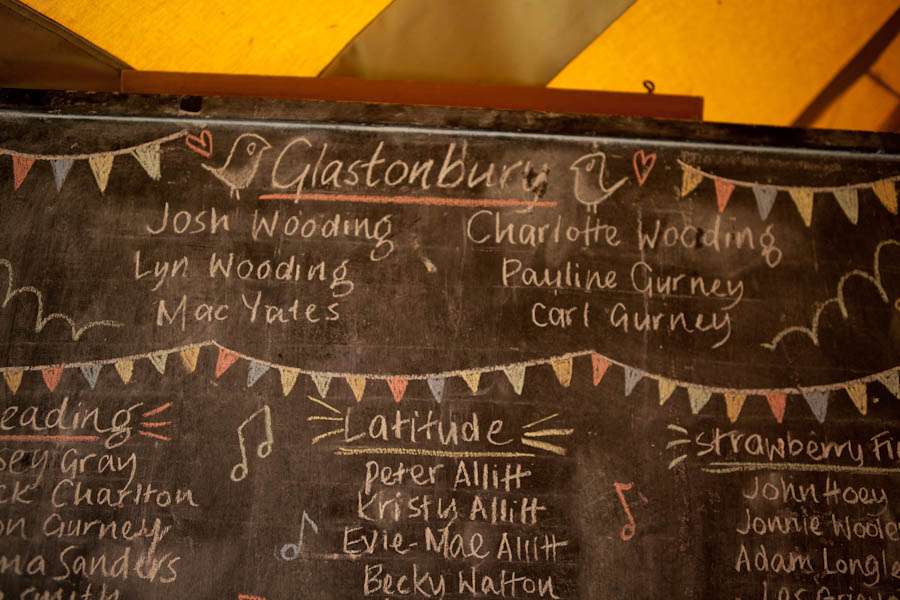 Glastonbury
Josh Wooding
Lyn Wooding
Mac Yates
Charlotte Wooding
Pauline Gurney
Carl Gurney
eading
sey Gray
ck Charlton
on Gurney
ma Sanders
smith
Latitude
Peter Allitt
Kristy Allitt
Evie-Mae Allitt
Becky Watton
Strawberry Fi
John Hoey
Jonnie Woole
Adam Longle